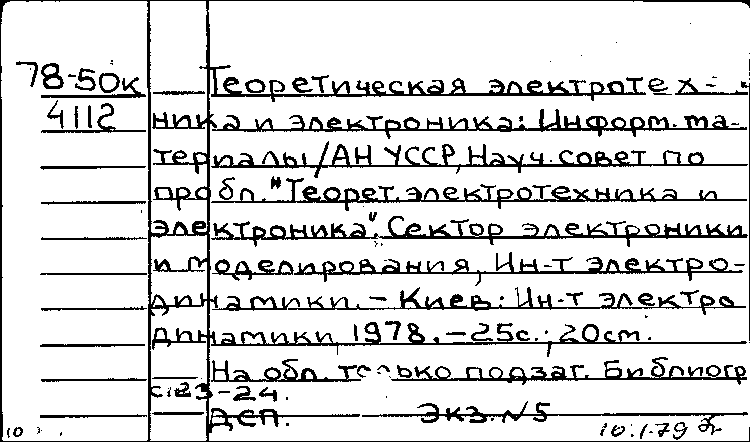 78-50к Теоретическая электротех-
4112 ника и электроника: Информ. ма-
териалы/АН УССР, Науч. совет по
пробл. "Теорет. электротехника и
электроника". Сектор электроники
и моделирования, Ин-т электро-
динамики. – Киев: Ин-т электро
динамики, 1978. – 25с.; 20см.
На обл. только подзаг. Библиогр
с. 23-24.
ДСП. Экз. N 5
10.1.79